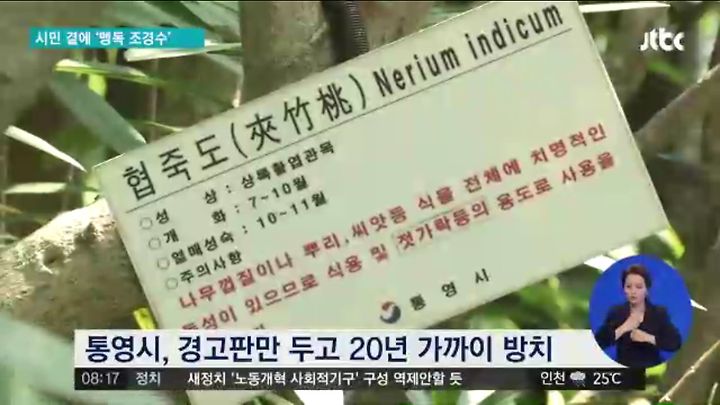 시민 곁에 '맹독 조경수'
jtbc
협죽도(夾竹桃) Nerium indicum
○성 상 : 상록활엽관목
○개 화 : 7~10월
○열매성숙 : 10~11월
○주의사항
나무껍질이나 뿌리,씨앗등 식물 전체에 치명적인
독성이 있으므로 식용 및 젓가락등의 용도로 사용을
통영시
통영시, 경고판만 두고 20년 가까이 방치
08:17 정치 새정치 '노동개혁 사회적기구' 구성 역제안할 듯 인천 25℃